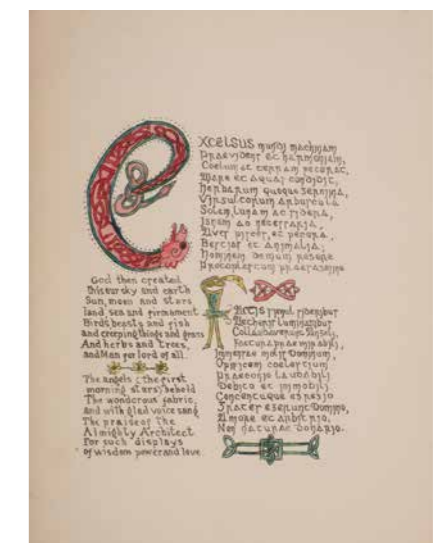 EXCELSUS mundi machinam
Praevidens et harmoniam,
Coelum et terram fecerat,
Mare et aquas condidit,
Herbarum quoque germina,
Virgultorum arbuscula
Solem, Lunam ac sidera,
Ignem ac necessaria,
Aves pisces, et pecora,
Bestias et Animalia;
Hominem demum regere
Protoplastum praesagmine
God then created
This our sky and earth
Sun, moon and stars
land sea and firmament
Birds beasts and fish
and creeping things and grass
And herbs and trees,
and Man for lord of all.
The angels, the first
morning stars, beheld
The wondorous fabric,
and with glad voice sang
The praise of the
Almighty Architect
For such displays
of wisdom power and love
FACTIS simul sideribus
Aetheris Luminaribus
Collaudaverunt Angeli,
Factura praemirabili,
Immensae molis Dominum,
Opificem coelestium
Praeconio laudabili
Debito et immobili
Concentuque egregio
Grates egerunt Domino,
Amore et Arbitrio,
Non naturae donario.